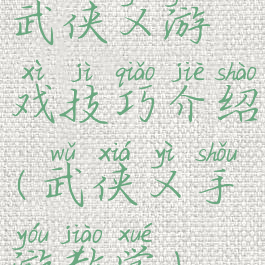 武侠乂游
xì jì qiǎo jiè shào
戏技巧介绍
wǔ xiá yì shǒu
(武侠乂手
yóu jiào xué
游教学)